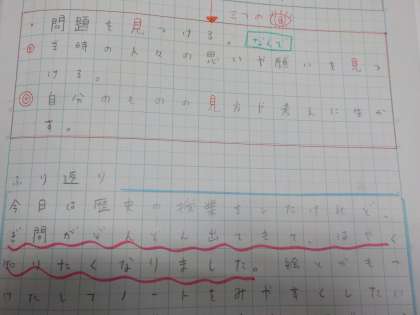 三つの
・問題を見つける。
たくて
◎当時の人々の思いや願いを見つ
ける。
◎自分のものの見方や考えに生か
す。
ふり返り
今日は歴史の授業をしたけれど、
ぎ問がどんどん出てきて、はやく
知りたくなりました。絵とかをつ
けたしてノートをみやすくしたい